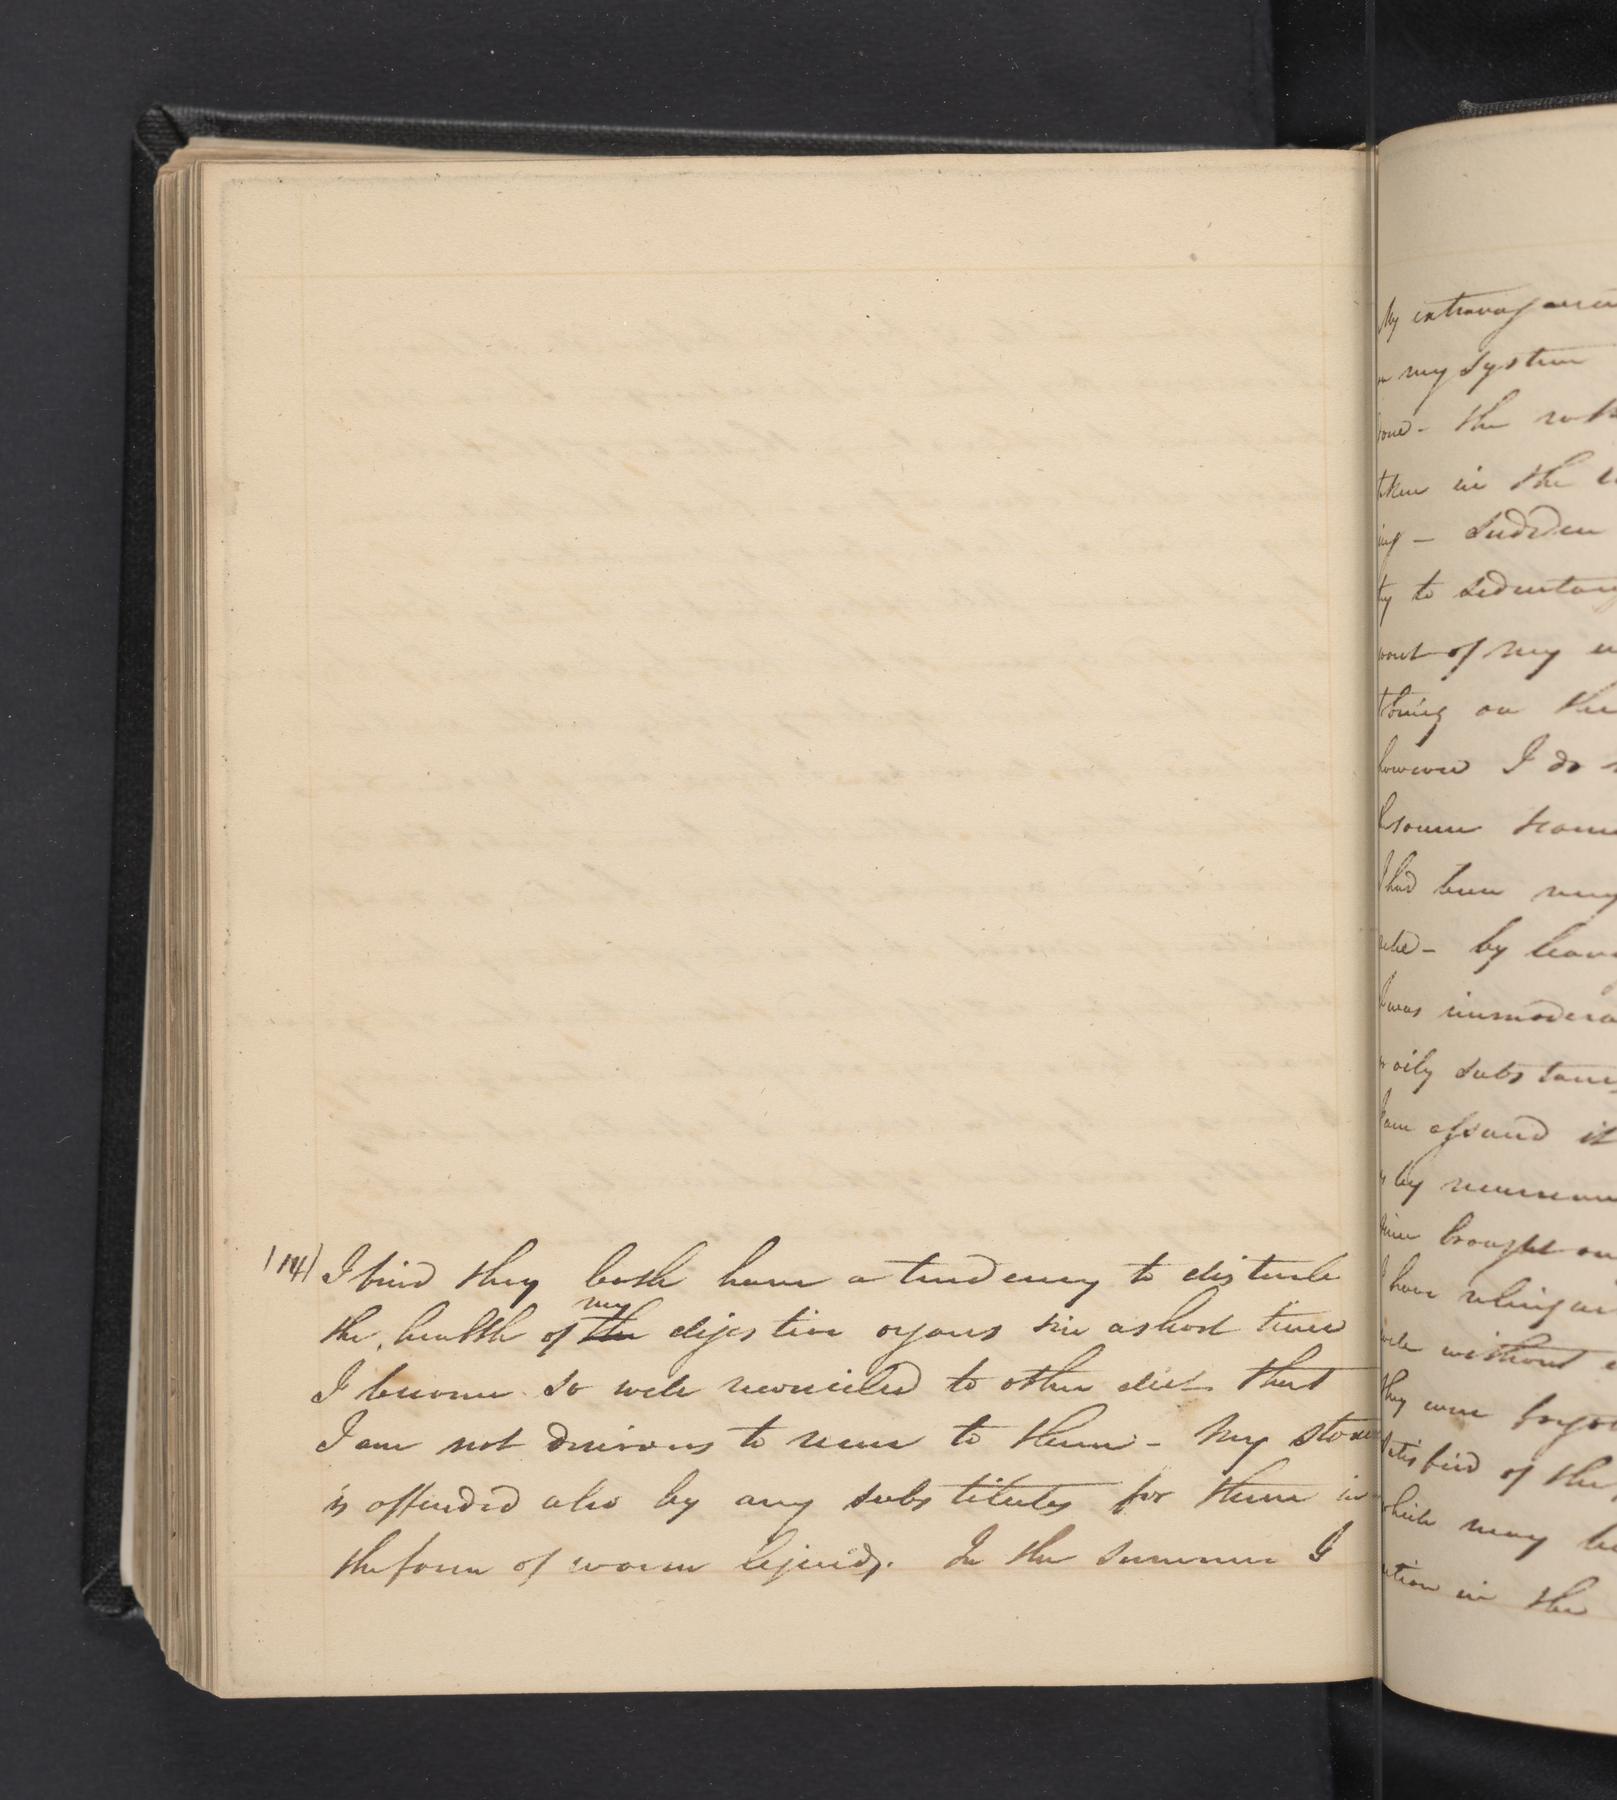 (14) I find they both have a tendency to disturb
my
the health of the digestive organs in a short time
I become so well reconciled to other diet that
I am not desirous to recur to them - My stomach
is offended also by any substitutes for them in
the form of warm liquids. In the summer I
My extravagance
my system
the
taken in the
ing - Sudden
ty to sedentary
of my
thing on the
however I do
some
I had been very
by leaving
I was immodera
oily substances
I am assured it
by
brought on
I have relinqu
without
they were forgot
satisfied of the
which may be
ation in the